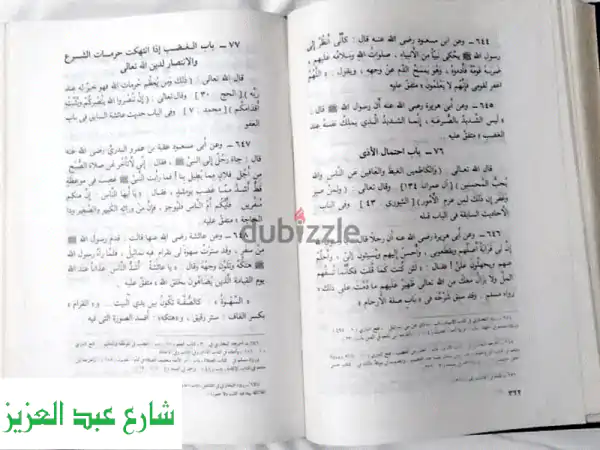 ٦٤٤ – وعن ابن مسعود رضى الله عنه قال : كأنى أنظر إلى
رسول الله ﷺ يحكى نبيا من الأنبياء ، صلوات الله وسلامه عليهم ،
ضربه قومه فأدموه ، وهو يمسح الدم عن وجهه ، ويقول : « اللهم
اغفر لقومى فإنهم لا يعلمون » متفق عليه .
٦٤٥ – وعن أبى هريرة رضى الله عنه أن رسول الله ﷺ قال :
« ليس الشديد بالصرعة ، إنما الشديد الذى يملك نفسه عند
الغضب » متفق عليه .
٧٦ – باب احتمال الأذى
قال الله تعالى : ( والكاظمين الغيظ والعافين عن الناس والله
يحب المحسنين ) [ آل عمران ١٣٤ ] وقال تعالى : ( ولمن صبر
وغفر إن ذلك لمن عزم الأمور ) [ الشورى ٤٣ ] وفى الباب :
الأحاديث السابقة فى الباب قبله
٦٤٦ – وعن أبى هريرة رضى الله عنه أن رجلا قال :
إن لى قرابة أصلهم ويقطعونى ، وأحسن إليهم ويسيئون إلى ، وأحلم
عنهم ويجهلون على ! فقال : « لئن كنت كما قلت فكأنما تسفهم
المل ولا يزال معك من الله تعالى ظهير عليهم ما دمت على ذلك »
رواه مسلم . وقد سبق شرحه فى « باب صلة الأرحام »
٣٢٢
٧٧ – باب الغضب إذا انتهكت حرمات الشرع
والانتصار لدين الله تعالى
قال الله تعالى : ( ذلك ومن يعظم حرمات الله فهو خير له عند
ربه ) [ الحج ٣٠ ] وقال تعالى : ( إن تنصروا الله ينصركم ويثبت
أقدامكم ) [ محمد : ٧ ] وفى الباب حديث عائشة السابق فى باب
العفو
٦٤٧ – وعن أبى مسعود عقبة بن عمرو البدرى رضى الله عنه
قال : جاء رجل إلى النبى ﷺ ، فقال : إنى لأتأخر عن صلاة الصبح
من أجل فلان مما يطيل بنا ! فما رأيت النبى ﷺ غضب فى موعظة
قط أشد مما غضب يومئذ ، فقال : « يا أيها الناس إن منكم
منفرين . فأيكم أم الناس فليوجز ، فإن من ورائه الكبير والصغير وذا
الحاجة » متفق عليه .
٦٤٨ – وعن عائشة رضى الله عنها قالت : قدم رسول الله ﷺ
من سفر ، وقد سترت سهوة لى بقرام فيه تماثيل ، فلما رآه رسول الله
ﷺ هتكه وتلون وجهه وقال : « يا عائشة أشد الناس عذابا عند الله
يوم القيامة الذين يضاهون بخلق الله » متفق عليه .
« السهوة » كالصفة تكون بين يدى البيت ... و « القرام »
بكسر القاف : ستر رقيق ، و « هتكه » : أفسد الصورة التى فيه
dubizzle
شارع عبد العزيز